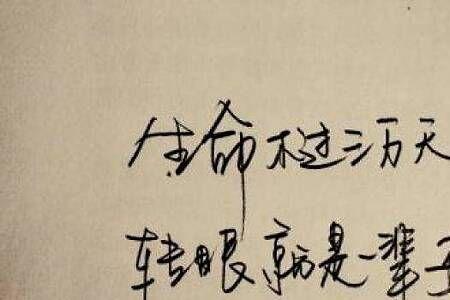 人生命不过三万天
转眼就是一辈子